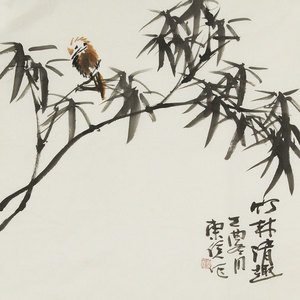 竹林清趣
乙酉冬月
東溪作